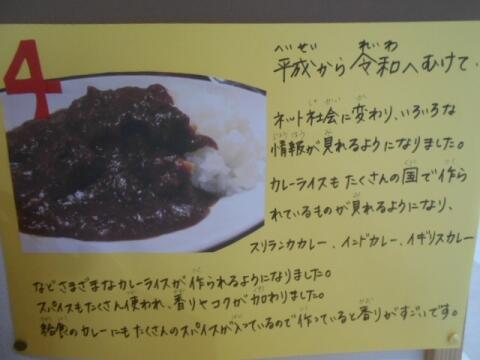 4
平成から令和へむけて、
ネット社会に変わり、いろいろな
情報が見れるようになりました。
カレーライスもたくさんの国で作ら
れているものが見れるようになり、
スリランカカレー、インドカレー、イギリスカレー
などさまざまなカレーライスが作られるようになりました。
スパイスもたくさん使われ、香りやコクが加わりました。
給食のカレーにもたくさんのスパイスが入っているので作っていると香りがすごいです。